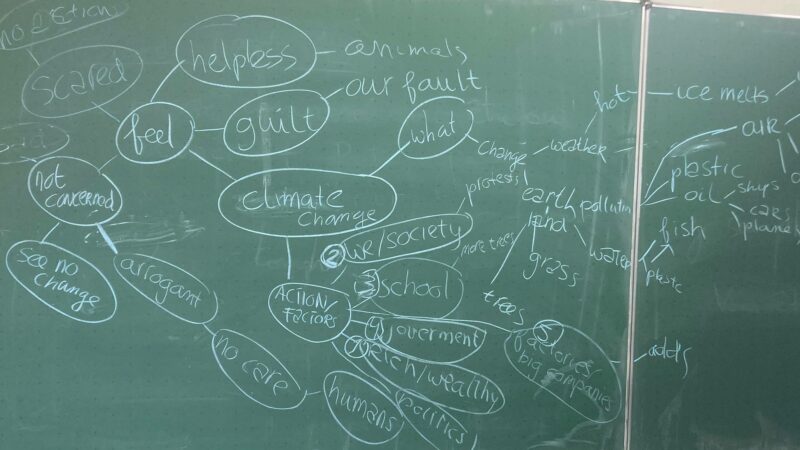 scared
helpless
animals
our fault
guilt
feel
what
change
weather
hot
ice melts
air
not
concerned
climate
change
protests
earth
pollution
plastic
oil
ships
cars
planes
see no
change
arrogant
2 we/society
more trees
land
grass
water
fish
plastic
3 school
trees
ACTION/
Factors
goverment
5
factories/
big companies
adds
rich/wealthy
politics
no care
humans